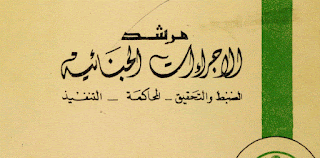 مرشد
الاجراءات الجنائية
الضبط والتحقيق - المحاكمة - التنفيذ